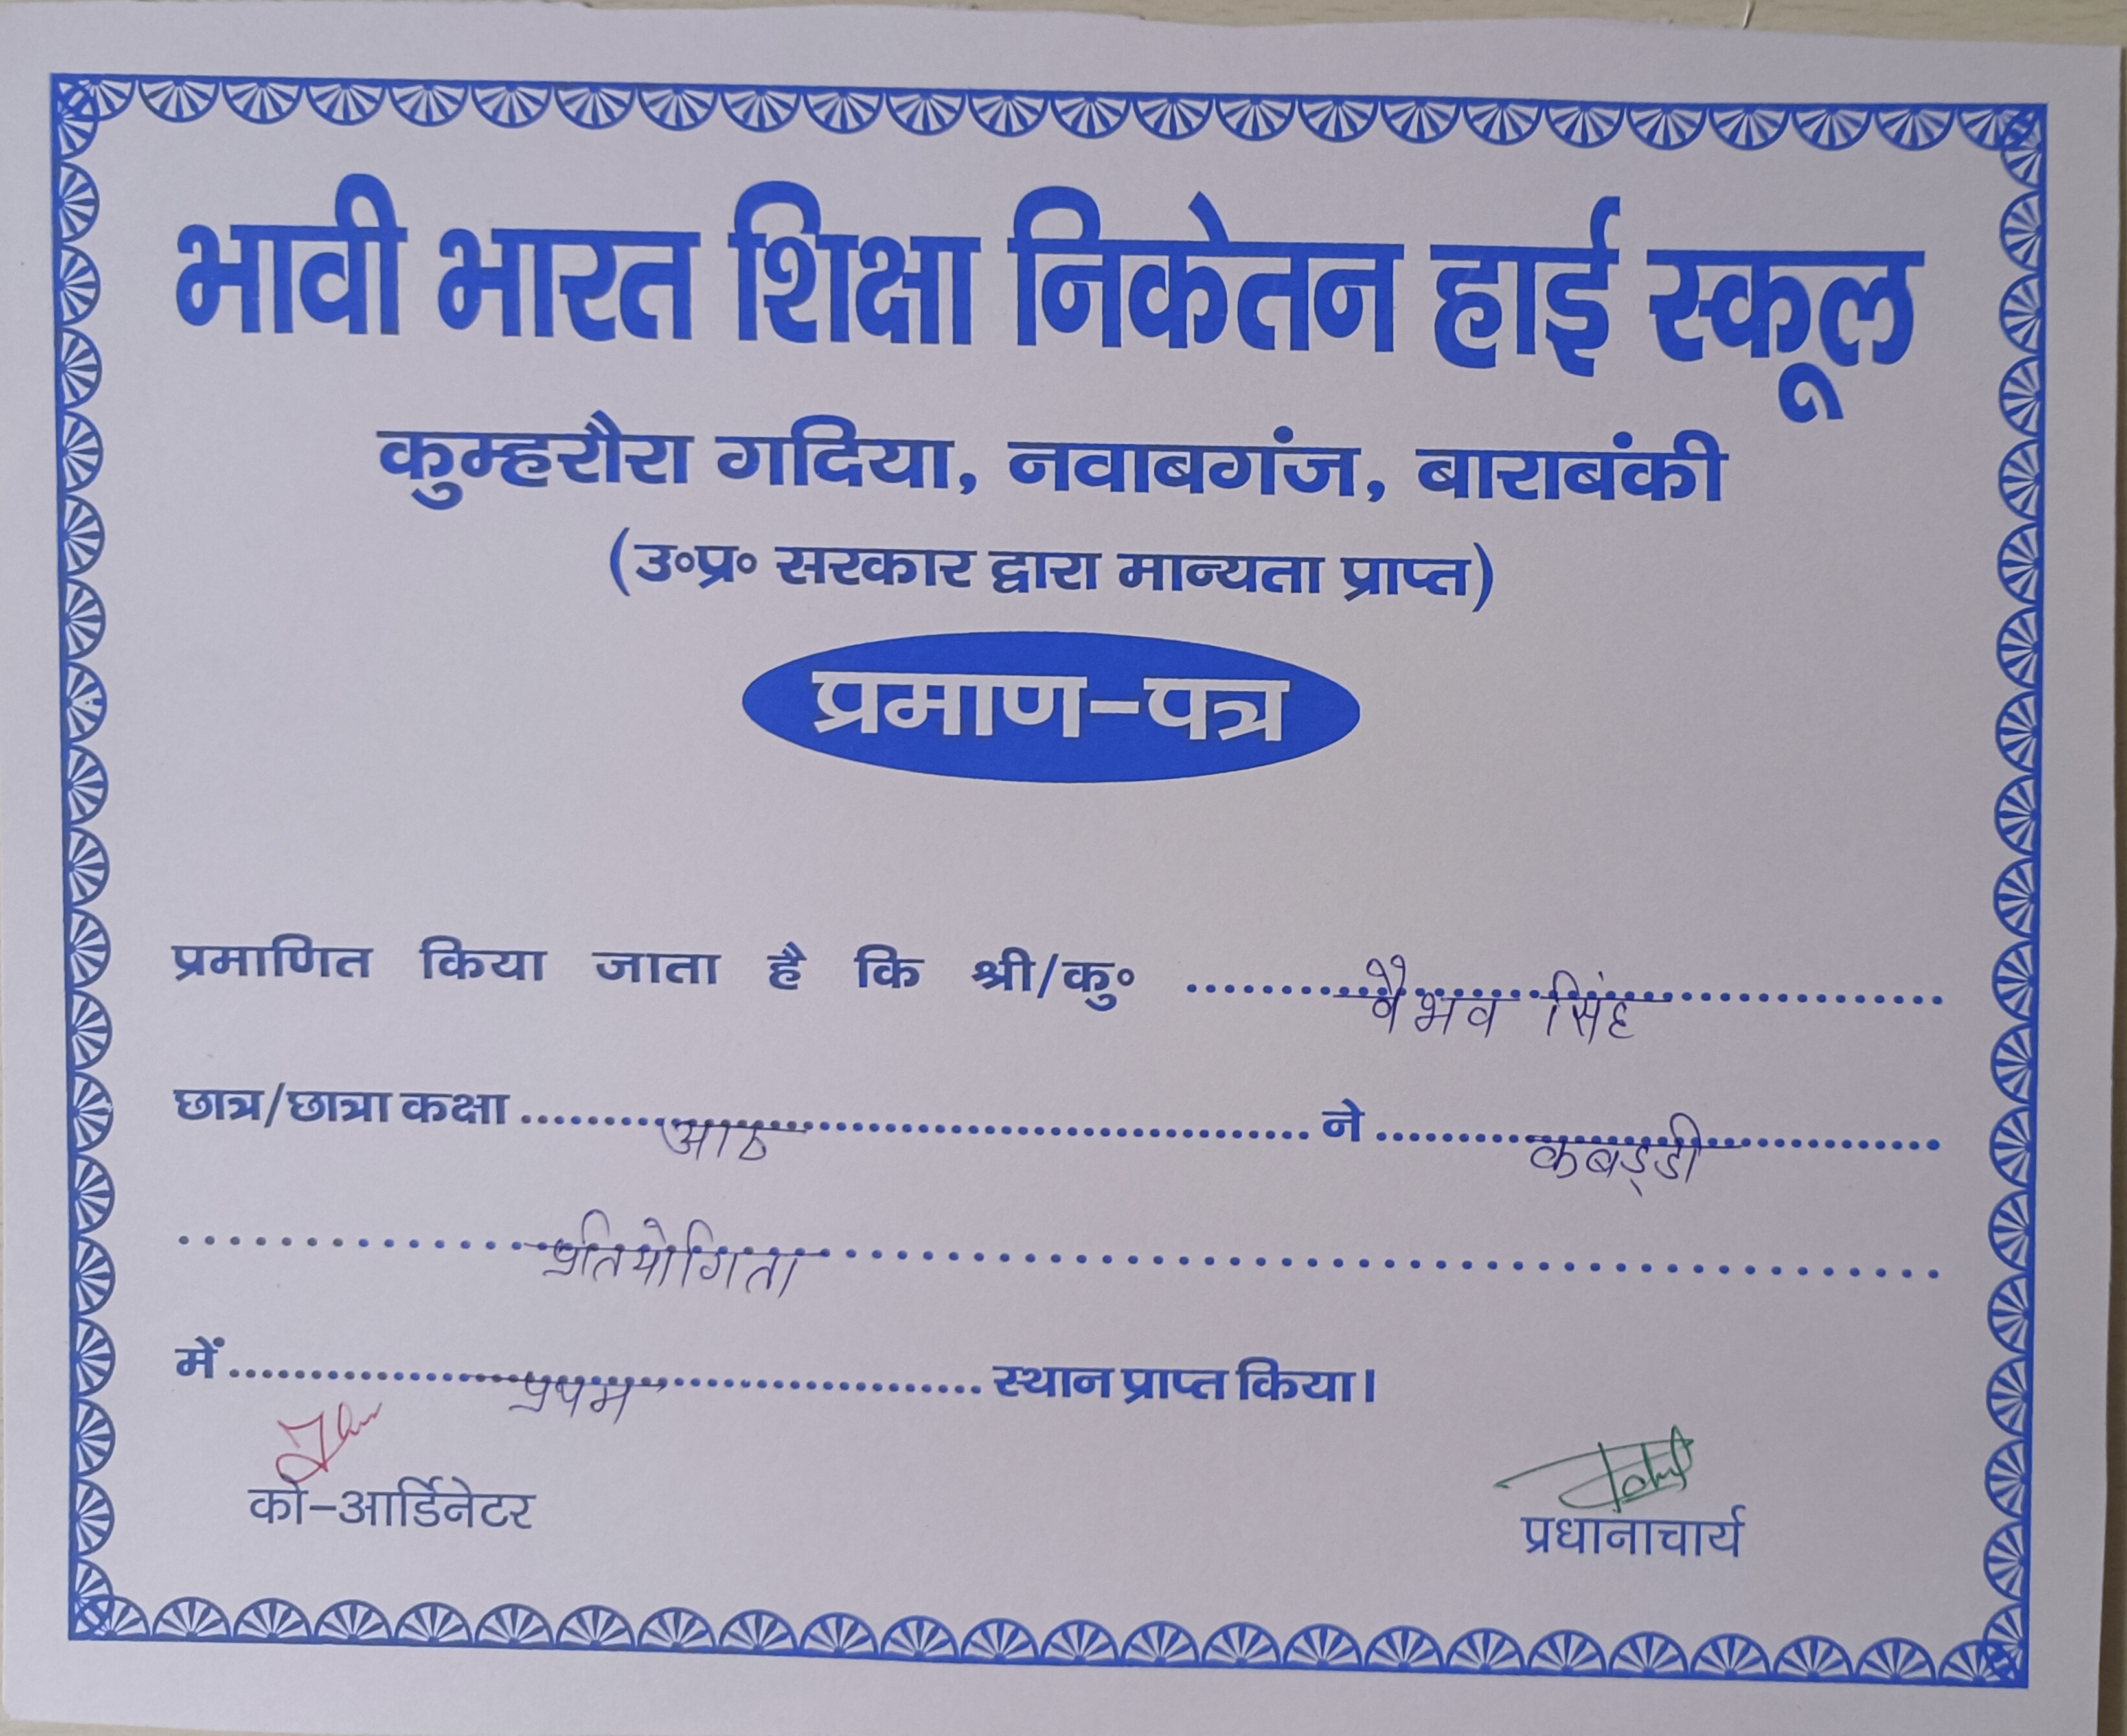 भावी भारत शिक्षा निकेतन हाई स्कूल
कुम्हरौरा गदिया, नवाबगंज, बाराबंकी
(उ०प्र० सरकार द्वारा मान्यता प्राप्त)
प्रमाण-पत्र
प्रमाणित किया जाता है कि श्री/कु० वैभव सिंह
छात्र/छात्रा कक्षा आठ ने कबड्डी
प्रतियोगिता
में प्रथम स्थान प्राप्त किया।
को-आर्डिनेटर
प्रधानाचार्य